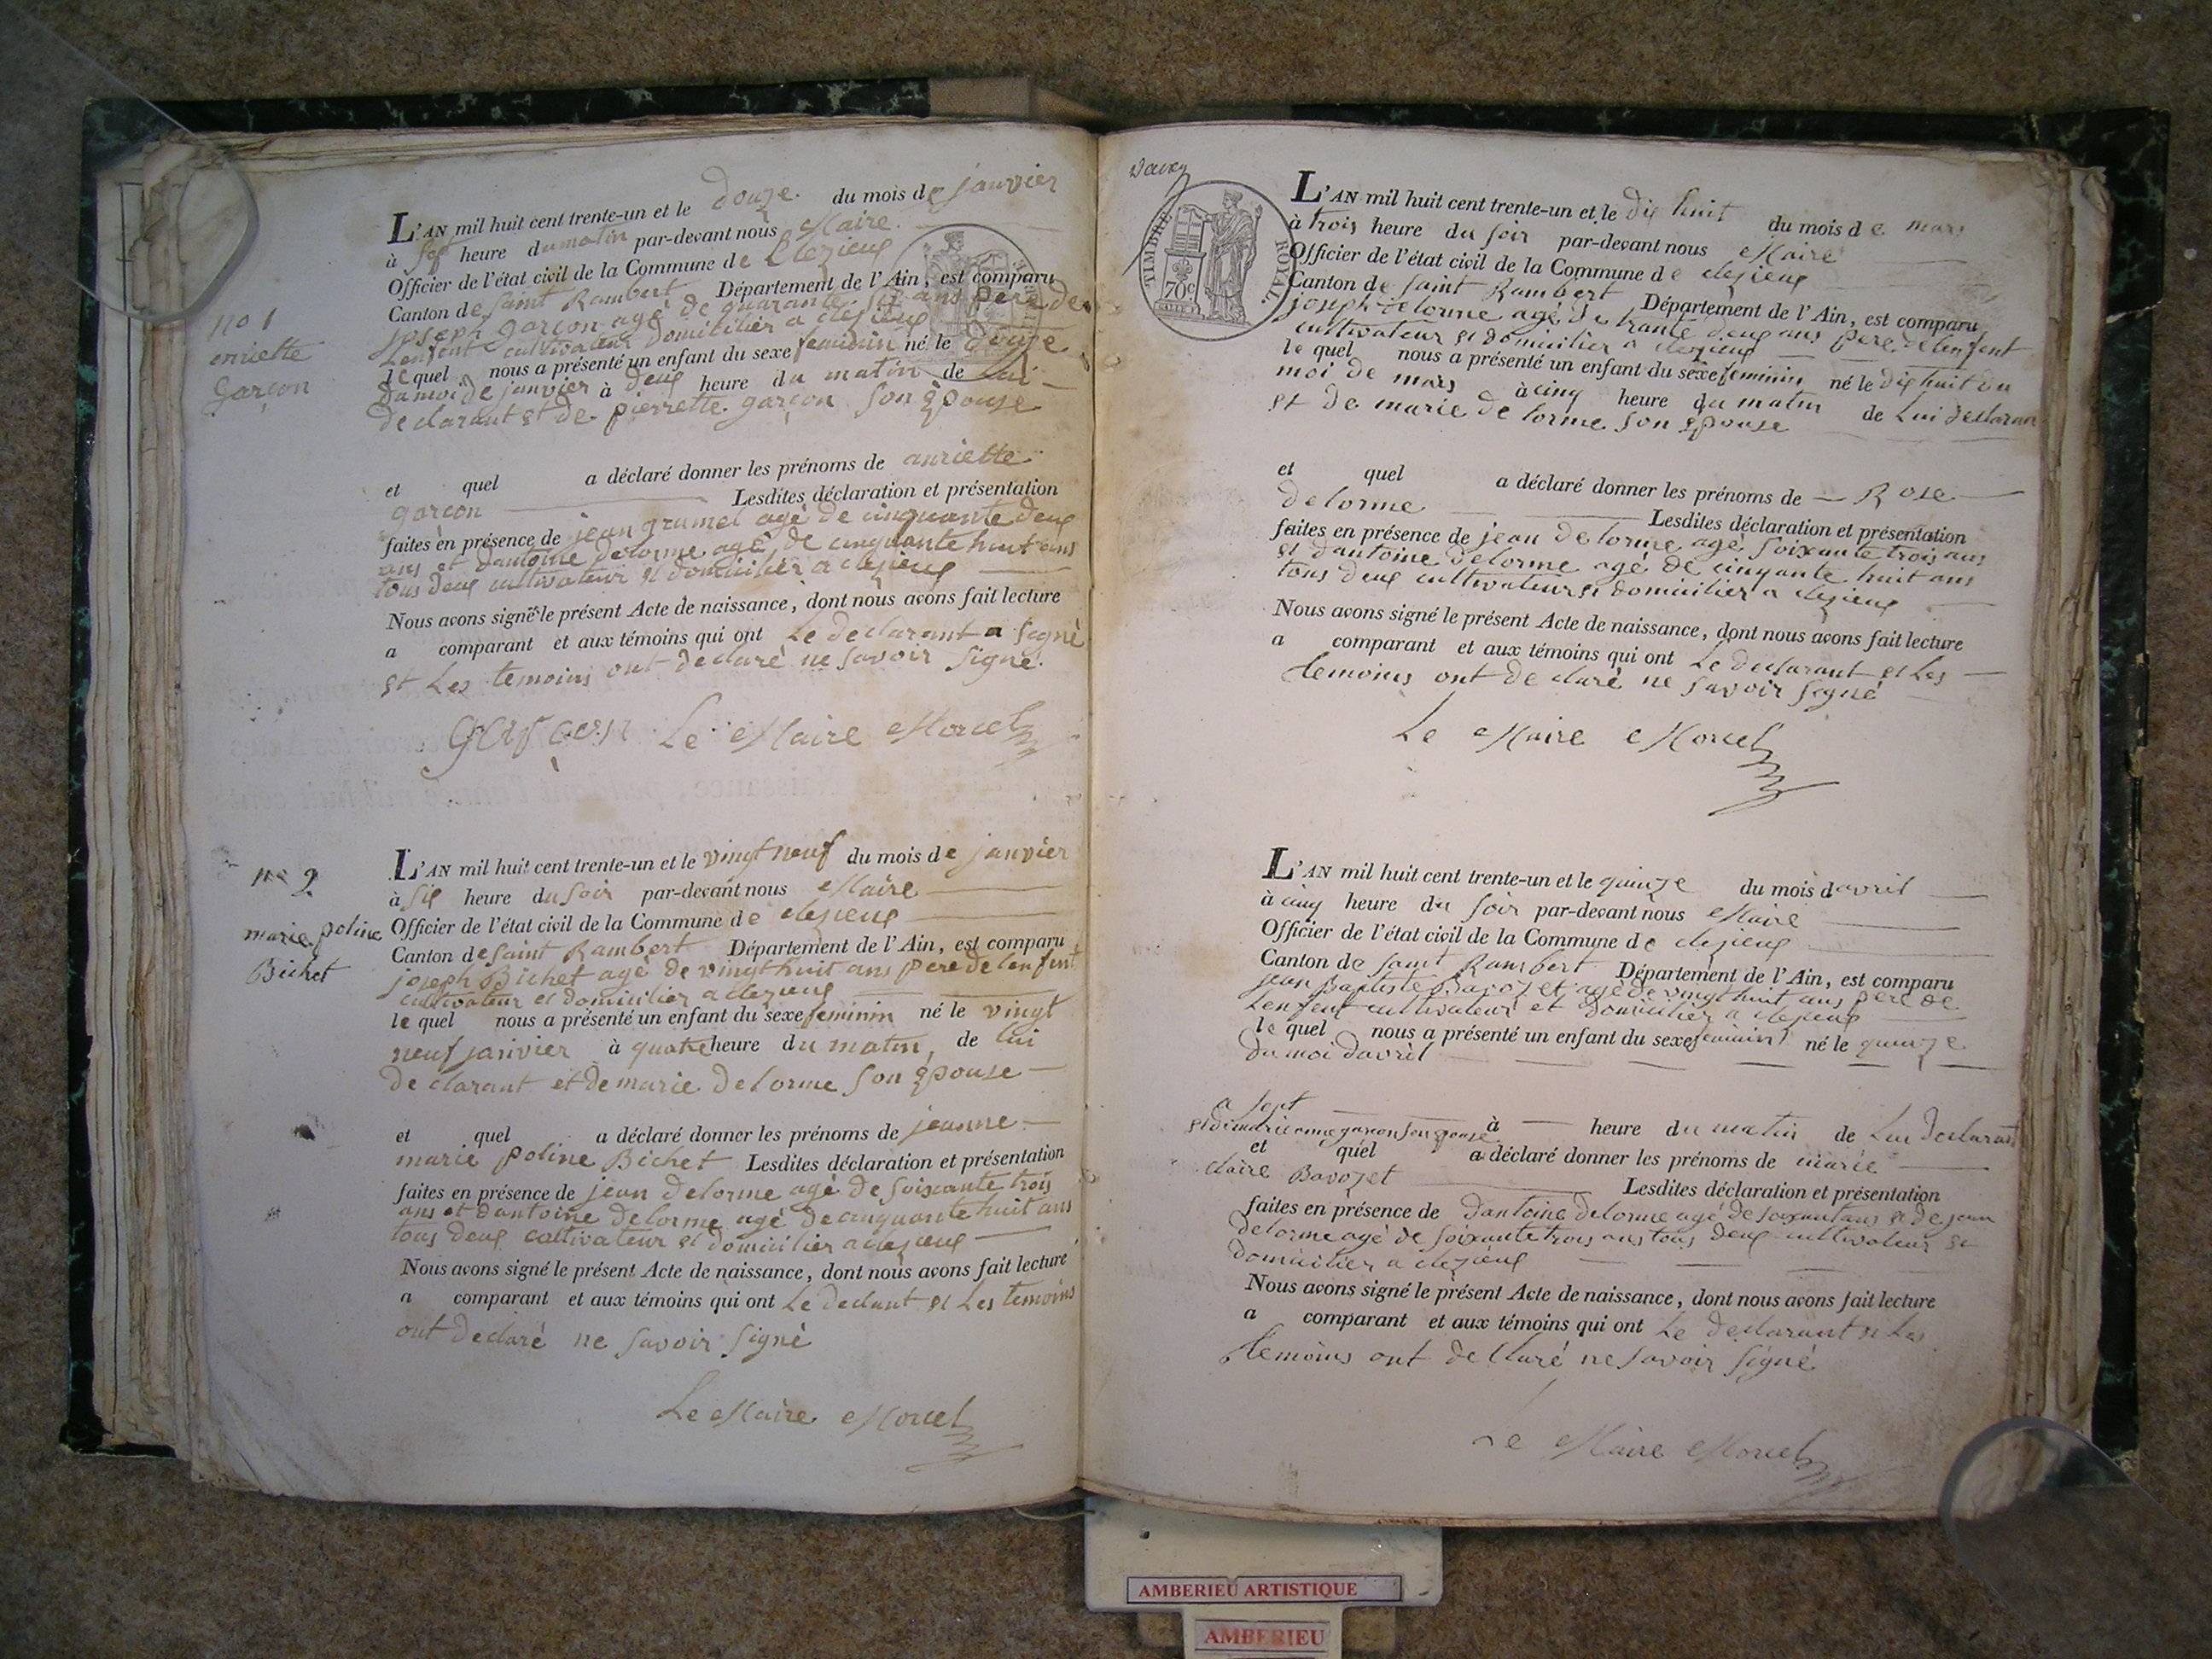 no 1
enriette
Garçon
L'AN mil huit cent trente-un et le douze. du mois de janvier
à heure du matin par-devant nous Maire.
Officier de l'état civil de la Commune de Clezieux
Canton de Saint Rambert Département de l'Ain, est comparu
joseph garçon agé de quarante ans pere de
Lenfent cultivateur domicilier a clezieux
le quel nous a présenté un enfant du sexe feminin né le douze
du moi de janvier à deux heure du matin de lui
declarant et de pierrette garçon son epouse
et quel a déclaré donner les prénoms de anriette
garcon Lesdites déclaration et présentation
faites en présence de jean grumel agé de cinquante deux
ans et dantoine delorme agé de cinquante huit ans
tous deux cultivateur et domicilier a clezieux
Nous avons signé le présent Acte de naissance, dont nous avons fait lecture
a comparant et aux témoins qui ont Le declarant a signé
et Les temoins ont declaré ne savoir signé.
garçon Le Maire Morcel
no 2
marie poline
Bichet
L'AN mil huit cent trente-un et le vingt neuf du mois de janvier
à six heure du soir par-devant nous Maire
Officier de l'état civil de la Commune de clezieux
Canton de Saint Rambert Département de l'Ain, est comparu
joseph Bichet agé de vingt huit ans pere de lenfent
cultivateur et domicilier a clezieux
le quel nous a présenté un enfant du sexe feminin né le vingt
neuf janvier à quatre heure du matin, de lui
declarant et de marie delorme son epouse
et quel a déclaré donner les prénoms de jeanne
marie poline Bichet Lesdites déclaration et présentation
faites en présence de jean delorme agé de soixante trois
ans et dantoine delorme agé de cinquante huit ans
tous deux cultivateur et domicilier a clezieux
Nous avons signé le présent Acte de naissance, dont nous avons fait lecture
a comparant et aux témoins qui ont Le declant et Les temoins
ont declaré ne savoir signé
Le Maire Morcel
TIMBRE ROYAL.
70c
L'AN mil huit cent trente-un et le dix huit du mois de mars
à trois heure du soir par-devant nous Maire
Officier de l'état civil de la Commune de clezieux
Canton de Saint Rambert Département de l'Ain, est comparu
joseph delorme agé de trante deux ans pere de lenfent
cultivateur et domicilier a clezieux
le quel nous a présenté un enfant du sexe feminin né le dix huit du
moi de mars à cinq heure du matin de Lui declaran
et de marie delorme son epouse
et quel a déclaré donner les prénoms de Rose
delorme Lesdites déclaration et présentation
faites en présence de jean delorme agé soixante trois ans
et dantoine delorme agé de cinqante huit ans
tous deux cultivateur et domicilier a clezieux
Nous avons signé le présent Acte de naissance, dont nous avons fait lecture
a comparant et aux témoins qui ont Le declarant et Les
temoins ont declaré ne savoir signé
Le Maire Morcel
L'AN mil huit cent trente-un et le quinze du mois davril
à cinq heure du soir par-devant nous Maire
Officier de l'état civil de la Commune de clezieux
Canton de Saint Rambert Département de l'Ain, est comparu
jean Baptiste Bavozet agé de vingt huit ans pere de
Lenfent cultivateur et domicilier a clezieux
le quel nous a présenté un enfant du sexe né le quinze
du moi davril
a sept
et de marie anne garcon son epouse à heure du matin de Lui declarant
et quel a déclaré donner les prénoms de marie
claire Bavozet Lesdites déclaration et présentation
faites en présence de dantoine delorme agé de soixant ans et de jean
delorme agé de soixante trois ans tous deux cultivateur et
domicilier a clezieux
Nous avons signé le présent Acte de naissance, dont nous avons fait lecture
a comparant et aux témoins qui ont Le declarant et Les
temoins ont declaré ne savoir signé
Le Maire Morcel
AMBERIEU ARTISTIQUE
AMBERIEU